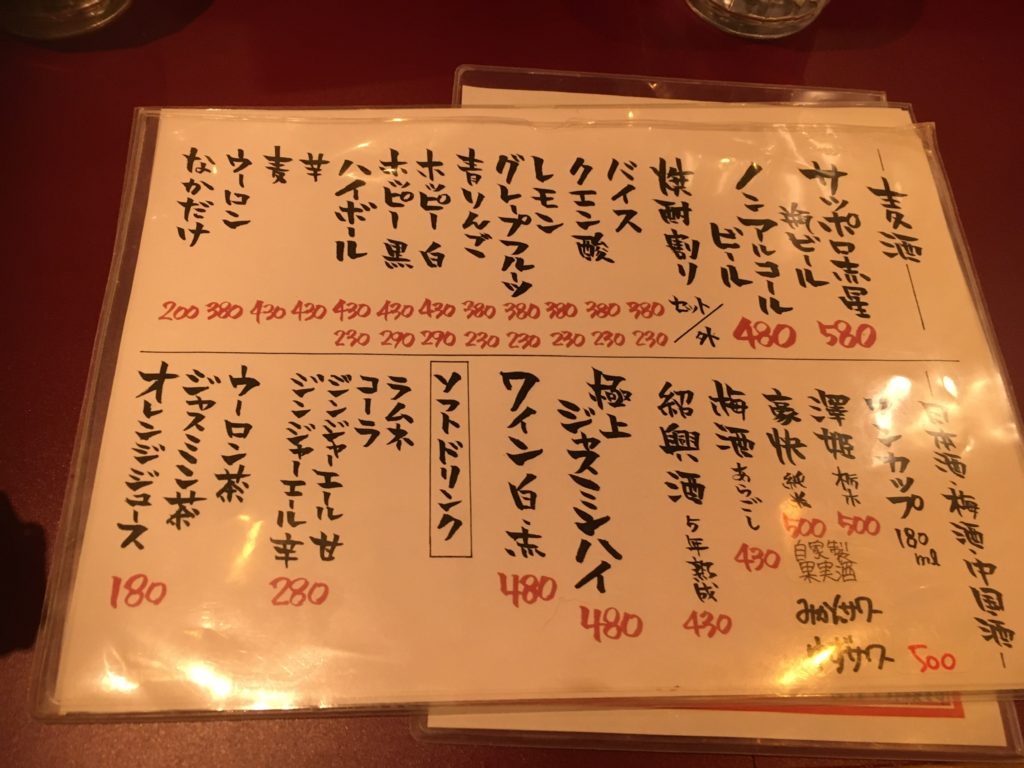 麦酒
サッポロ赤星
瓶ビール 580
ノンアルコール
ビール 480
焼酎割り セット/外
バイス 380 230
クエン酸 380 230
レモン 380 230
グレープフルーツ 380 230
青りんご 380 230
ホッピー 白 430 290
ホッピー 黒 430 290
ハイボール 430 230
芋 430
麦 430
ウーロン 380
なかだけ 200
日本酒・梅酒・中国酒
ワンカップ 180ml
澤姫 栃木 500
豪快 純米 500
自家製!
果実酒
みかんサワー
ゆずサワー 500
梅酒 あらごし 430
紹興酒 5年熟成 430
極上
ジャスミンハイ 480
ワイン 白・赤 480
ソフトドリンク
ラムネ
コーラ
ジンジャーエール 甘
ジンジャーエール 辛 280
ウーロン茶
ジャスミン茶
オレンジジュース 180